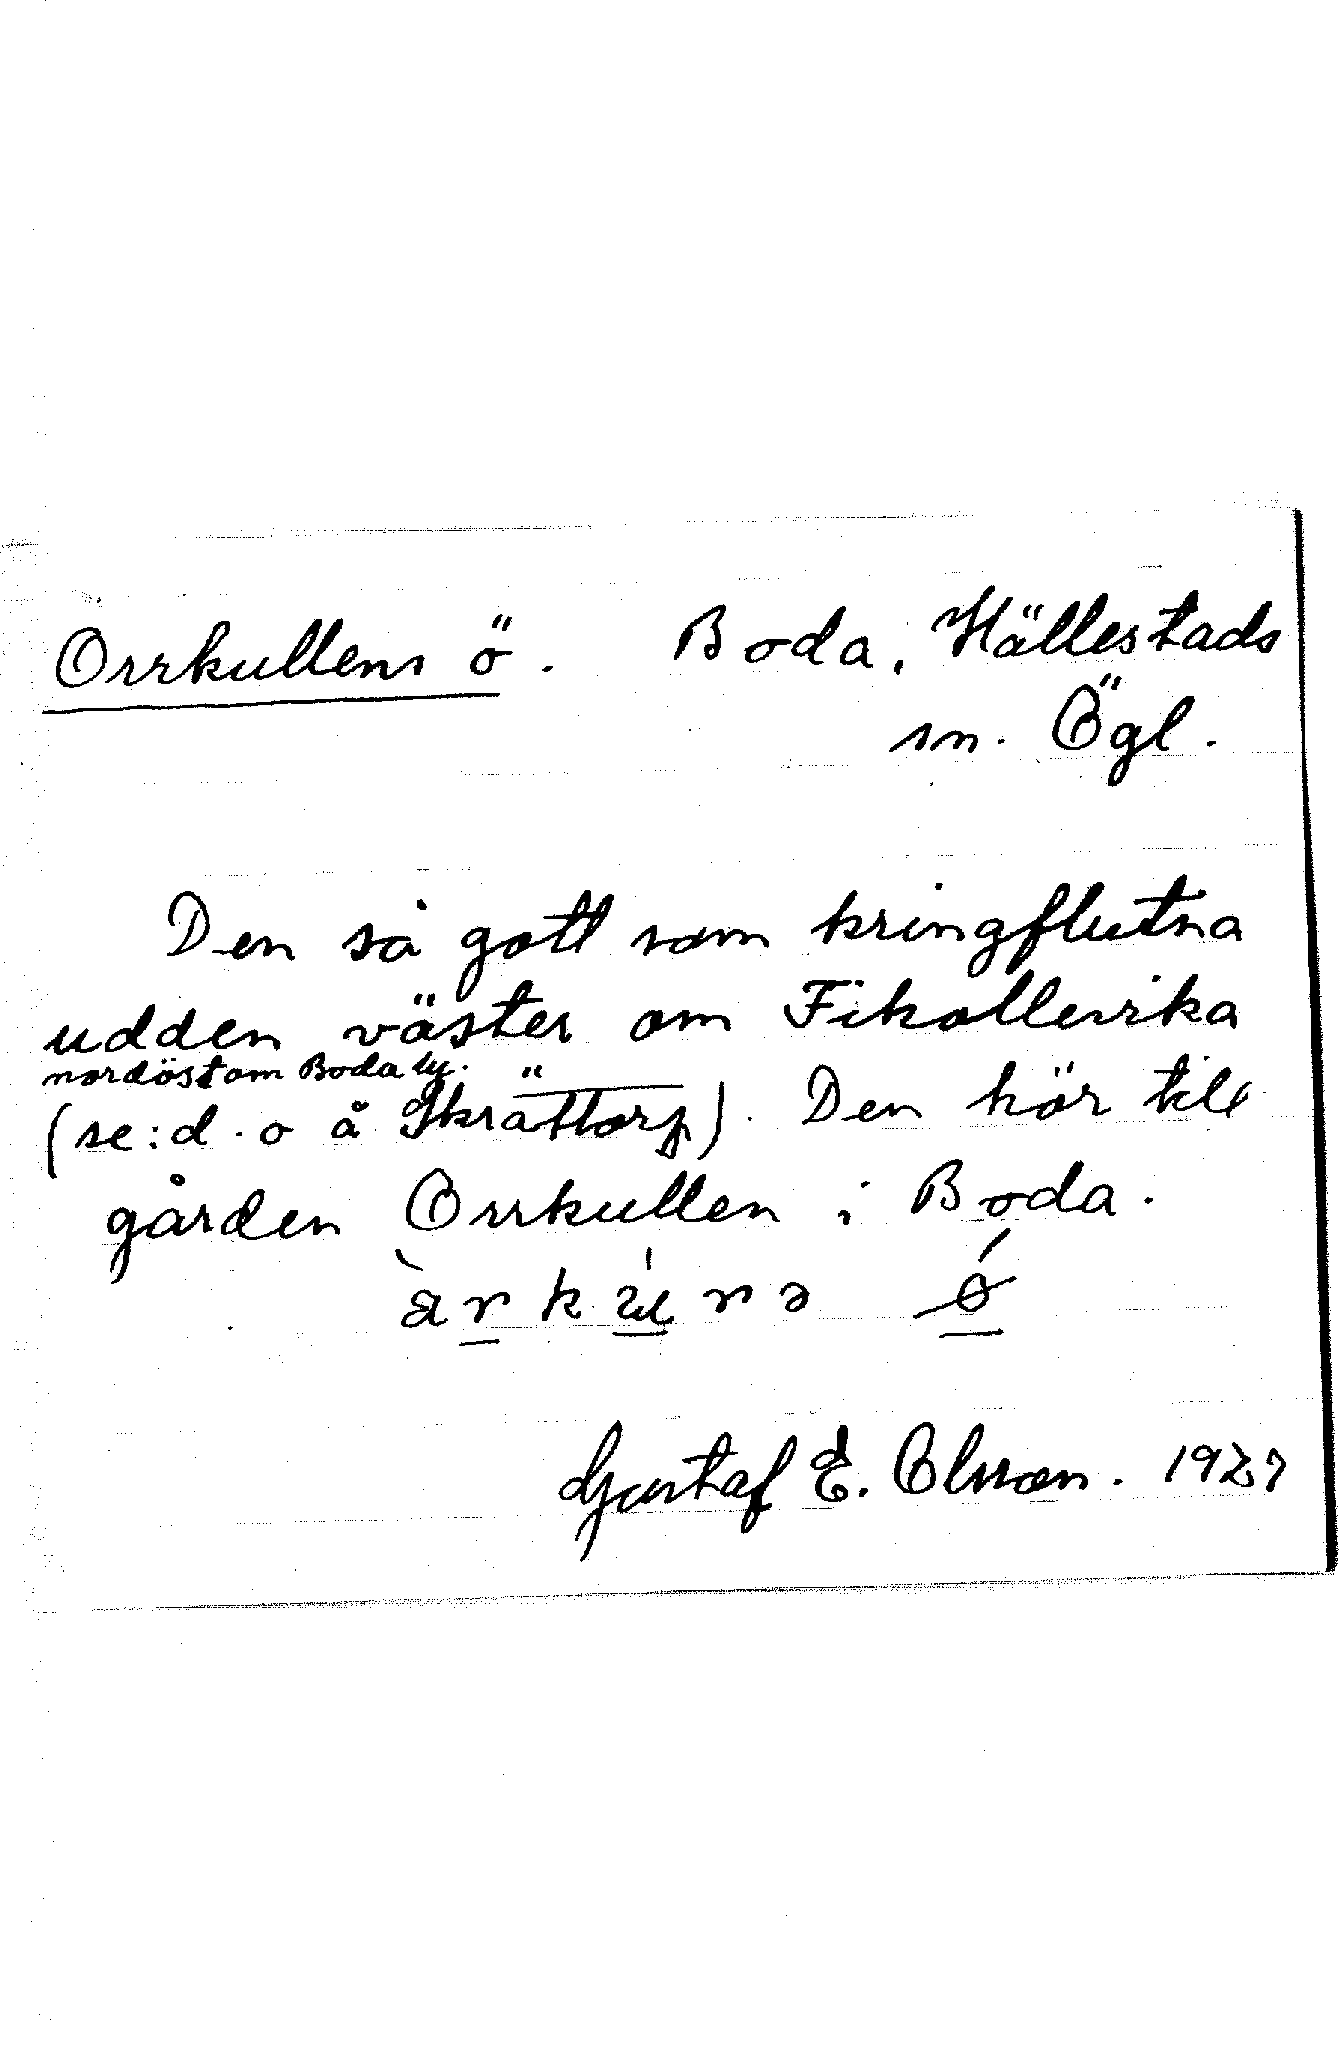 Orrkullens ö. Boda, Hällestads
sn. Ögl.
Den så gott som kringflutna
udden väster om Fikallerrika
nordöst om Boda by.
(se: d. o å Skrättorp). Den hör till
gården Orrkullen i Boda.
Gustaf E. Olsson. 1927